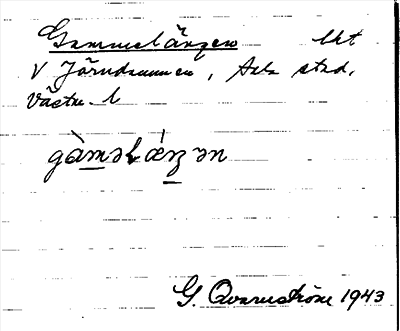 Gammelängen lht
V Järndammen, Sala stad,
Västm. l
gàməlǽŋən
G. Qvarnström 1943